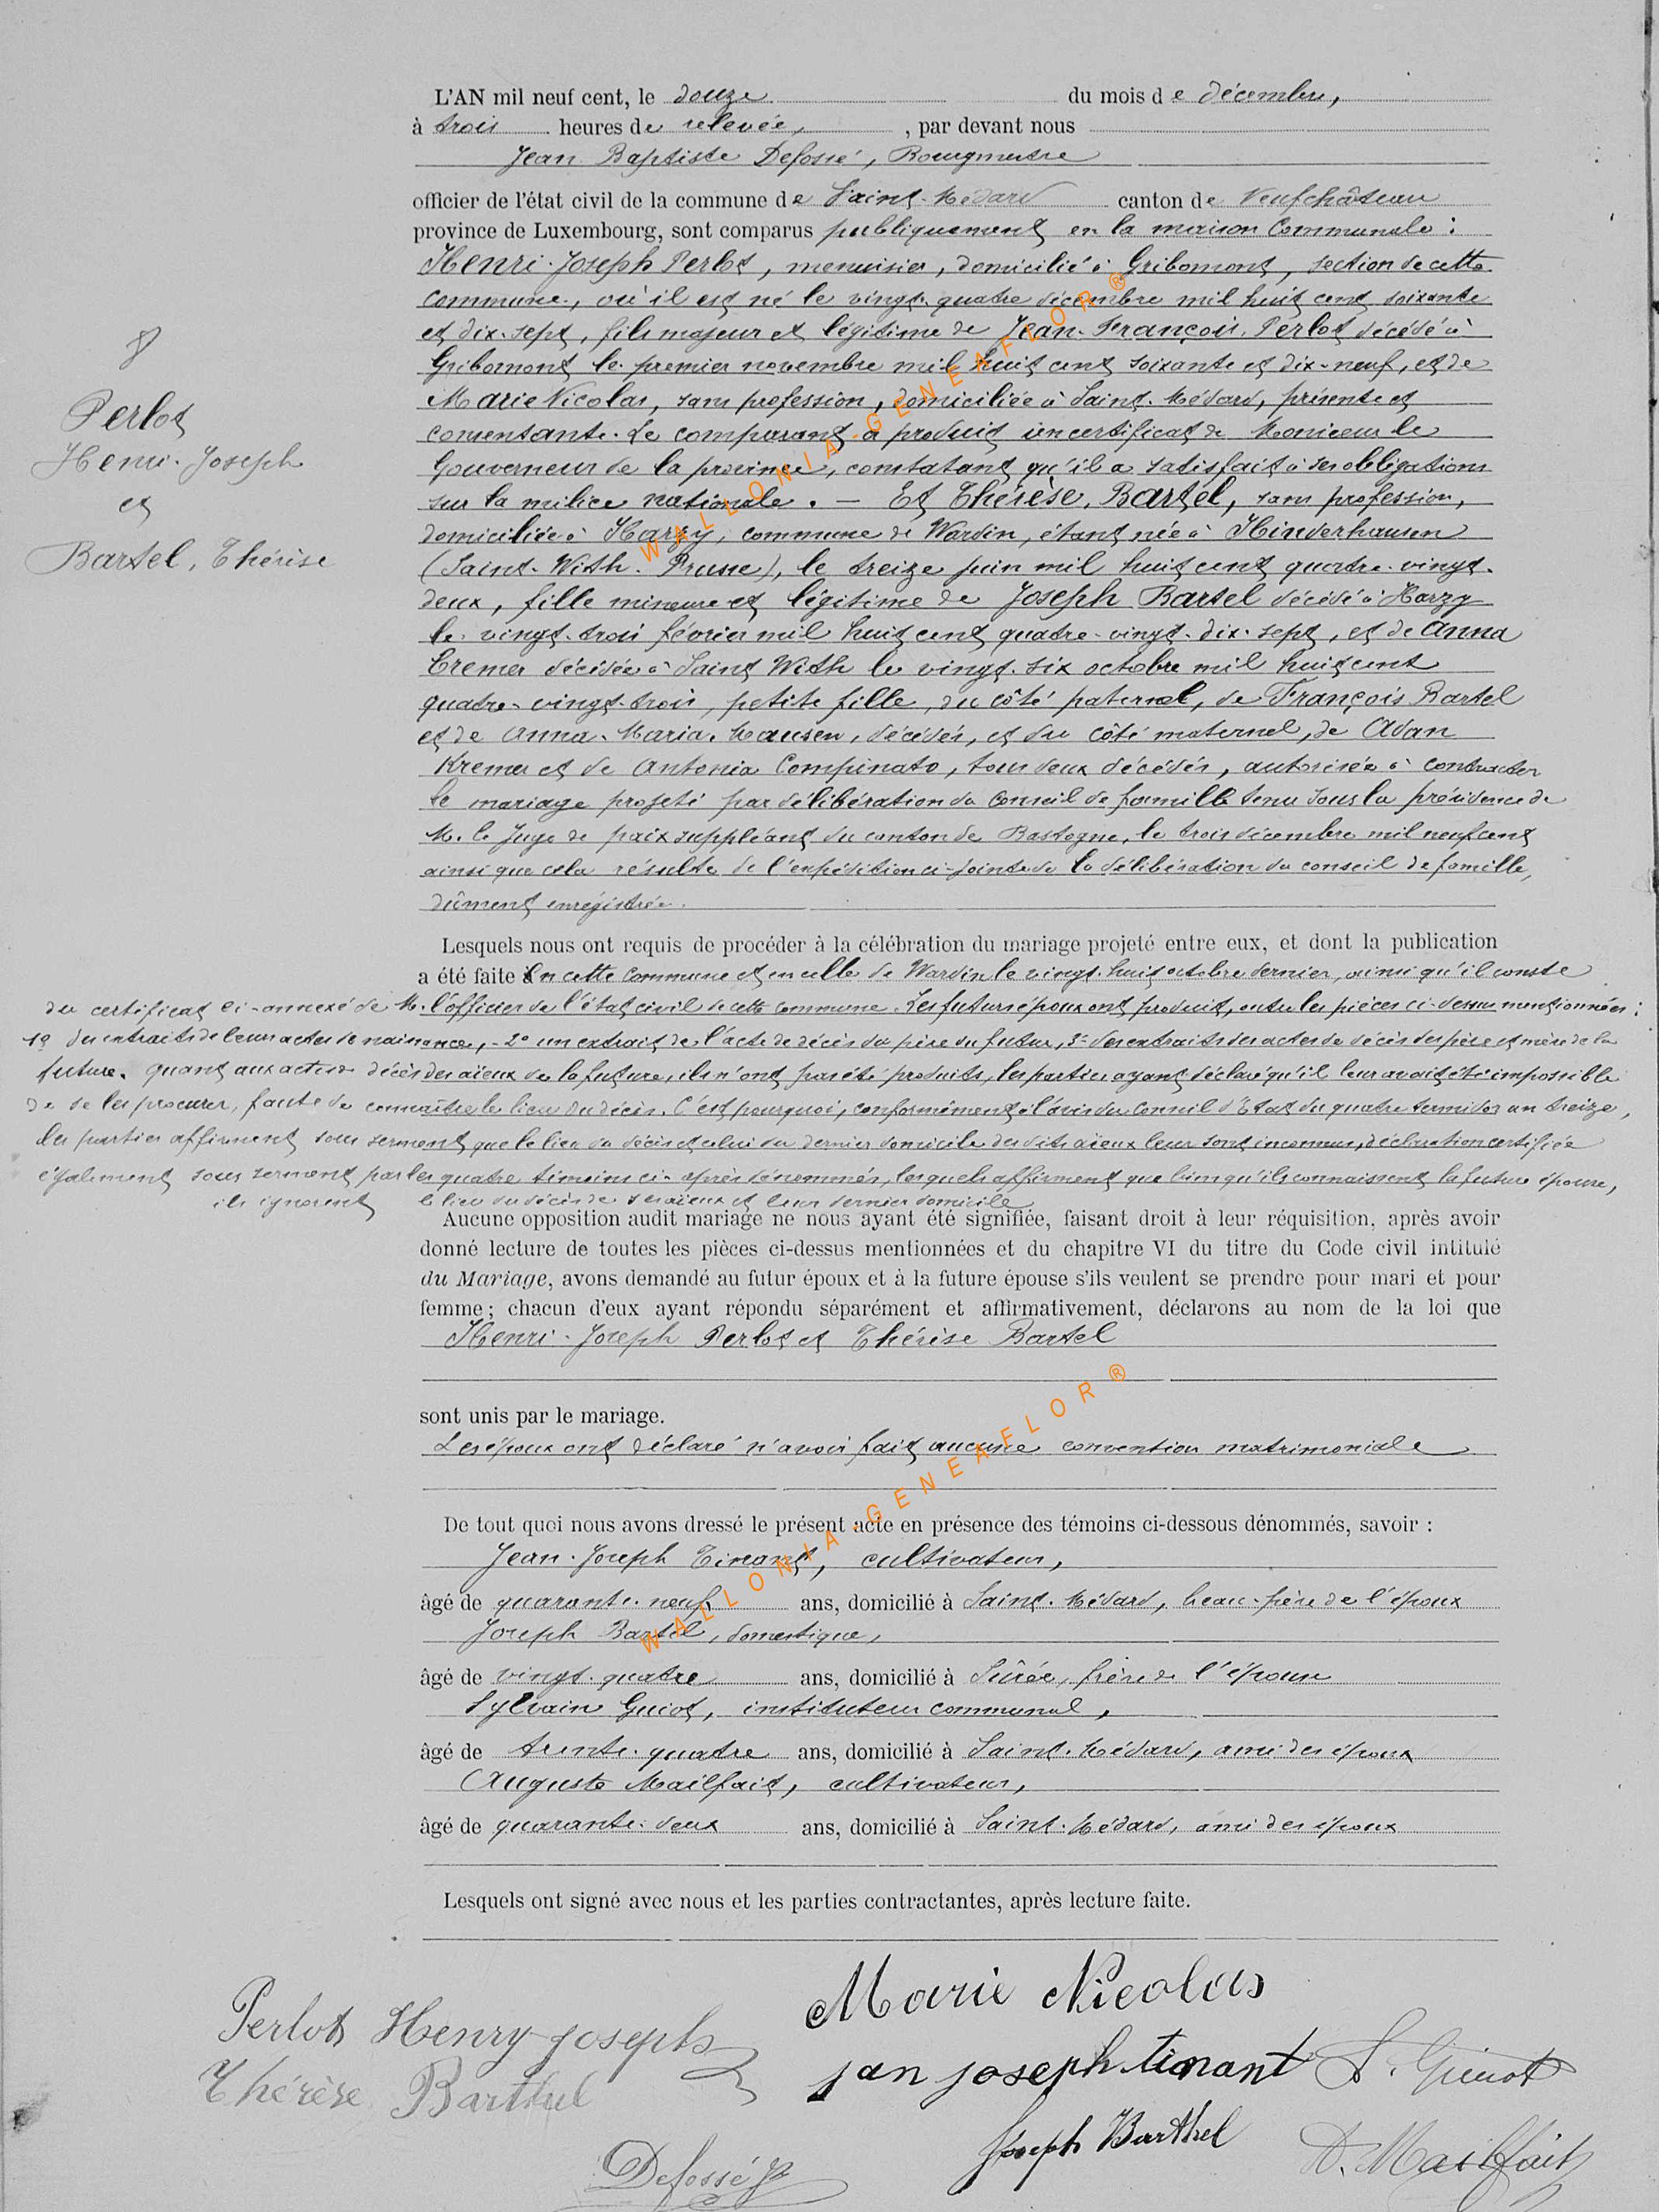 L'AN mil neuf cent, le douze du mois de décembre,
à trois heures de relevée, , par devant nous
Jean Baptiste Defossé, Bourgmestre
officier de l'état civil de la commune de Saint-Médard canton de Neufchâteau
province de Luxembourg, sont comparus publiquement en la maison Communale :
Henri-Joseph Perlot, menuisier, domicilié à Gribomont, section de cette
commune, où il est né le vingt-quatre décembre mil huit cent soixante
et dix-sept, fils majeur et légitime de Jean-François Perlot décédé à
8
Gribomont le premier novembre mil huit cent soixante et dix-neuf, et de
Perlot
Marie Nicolas, sans profession, domiciliée à Saint-Médard, présente et
consentante. Le comparant a produit un certificat de Monsieur le
Henri-Joseph
Gouverneur de la province, constatant qu'il a satisfait à ses obligations
et
sur la milice nationale. — Et Thérèse Bartel, sans profession,
domiciliée à Harzy, commune de Wardin, étant née à Hinderhausen
Bartel, Thérèse
(Saint-With. Prusse), le treize juin mil huit cent quatre-vingt-
deux, fille mineure et légitime de Joseph Bartel décédé à Harzy
le vingt-trois février mil huit cent quatre-vingt-dix-sept, et de Anna
Cremer décédée à Saint With le vingt-six octobre mil huit cent
quatre-vingt-trois, petite fille, du côté paternel, de François Bartel
et de Anna-Maria Mausen, décédés, et du côté maternel, de Adan
Kremer et de Antonia Compinato, tous deux décédés, autorisée à contracter
le mariage projeté par délibération du Conseil de famille tenu sous la présidence de
M. le Juge de paix suppléant du canton de Bastogne, le trois décembre mil neuf cent
ainsi que cela résulte de l'expédition ci-jointe de la délibération du conseil de famille,
dûment enrégistrée.
Lesquels nous ont requis de procéder à la célébration du mariage projeté entre eux, et dont la publication
a été faite en cette commune et en celle de Wardin le vingt-huit octobre dernier, ainsi qu'il conste
du certificat ci-annexé de M. l'officier de l'état civil de cette commune. Les futurs époux ont produit, outre les pièces ci-dessus mentionnées :
1° des extraits de leurs actes de naissance, - 2° un extrait de l'acte de décès du père du futur, 3° des extraits des actes de décès des père et mère de la
future. quant aux actes de décès des aïeux de la future, ils n'ont pas été produits, les parties ayant déclaré qu'il leur avait été impossible
de se les procurer, faute de connaître le lieu du décès. C'est pourquoi, conformément à l'avis du Conseil d'Etat du quatre termidor an treize,
les parties affirment sous serment que le lieu du décès et celui du dernier domicile des dits aïeux leur sont inconnus, déclaration certifiée
également sous serment par les quatre témoins ci-après dénommés, lesquels affirment que bien qu'ils connaissent la future épouse,
ils ignorent le lieu du décès de ses aïeux et leur dernier domicile
Aucune opposition audit mariage ne nous ayant été signifiée, faisant droit à leur réquisition, après avoir
donné lecture de toutes les pièces ci-dessus mentionnées et du chapitre VI du titre du Code civil intitulé
du Mariage, avons demandé au futur époux et à la future épouse s'ils veulent se prendre pour mari et pour
femme; chacun d'eux ayant répondu séparément et affirmativement, déclarons au nom de la loi que
Henri-Joseph Perlot et Thérèse Bartel
sont unis par le mariage.
Les époux ont déclaré n'avoir fait aucune convention matrimoniale
De tout quoi nous avons dressé le présent acte en présence des témoins ci-dessous dénommés, savoir :
Jean-Joseph Tinant, cultivateur,
âgé de quarante-neuf ans, domicilié à Saint-Médard, beau-père de l'époux
Joseph Bartel, domestique,
âgé de vingt-quatre ans, domicilié à Sûrée, frère de l'épouse
Sylvain Guiot, instituteur communal,
âgé de trente-quatre ans, domicilié à Saint-Médard, ami des époux
Auguste Mailfait, cultivateur,
âgé de quarante-deux ans, domicilié à Saint-Médard, ami des époux
Lesquels ont signé avec nous et les parties contractantes, après lecture faite.
Marie Nicolas
Perlot Henry joseph
jan joseph tinant S. Guiot
Thérèse Barthel
Joseph Barthel
A. Mailfait
Defossé JB
WALLONIA-GENEAFLOR®
WALLONIA-GENEAFLOR®